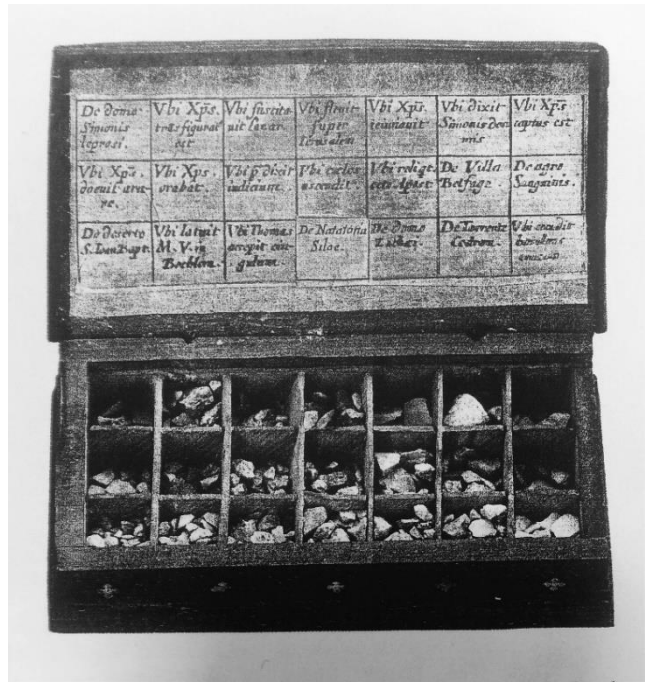 De domo
Simonis
leprosi.
Vbi Xp̃s.
trãsfigurat
est
Vbi suscita
uit lazar
Vbi fleuit
super
Vbi Xp̃s.
ieiunauit
Vbi dixit
Simonis
mis
Vbi Xp̃s
captus est
Vbi Xp̃s.
docuit ora
re.
Vbi Xp̃s.
orabat.
Vbi p̃ dixit
iudicium.
Vbi cęlos
ascendit.
Vbi
De Villa
Betfage.
De agro
Sanguinis.
De deserto
S. Ioan Bapt.
Vbi latuit
M. V. in
Bethleem.
Vbi Thomas
accepit cin
gulum.
De Natatoria
Siloe.
De domo
De Torrente
Cedron.
Vbi